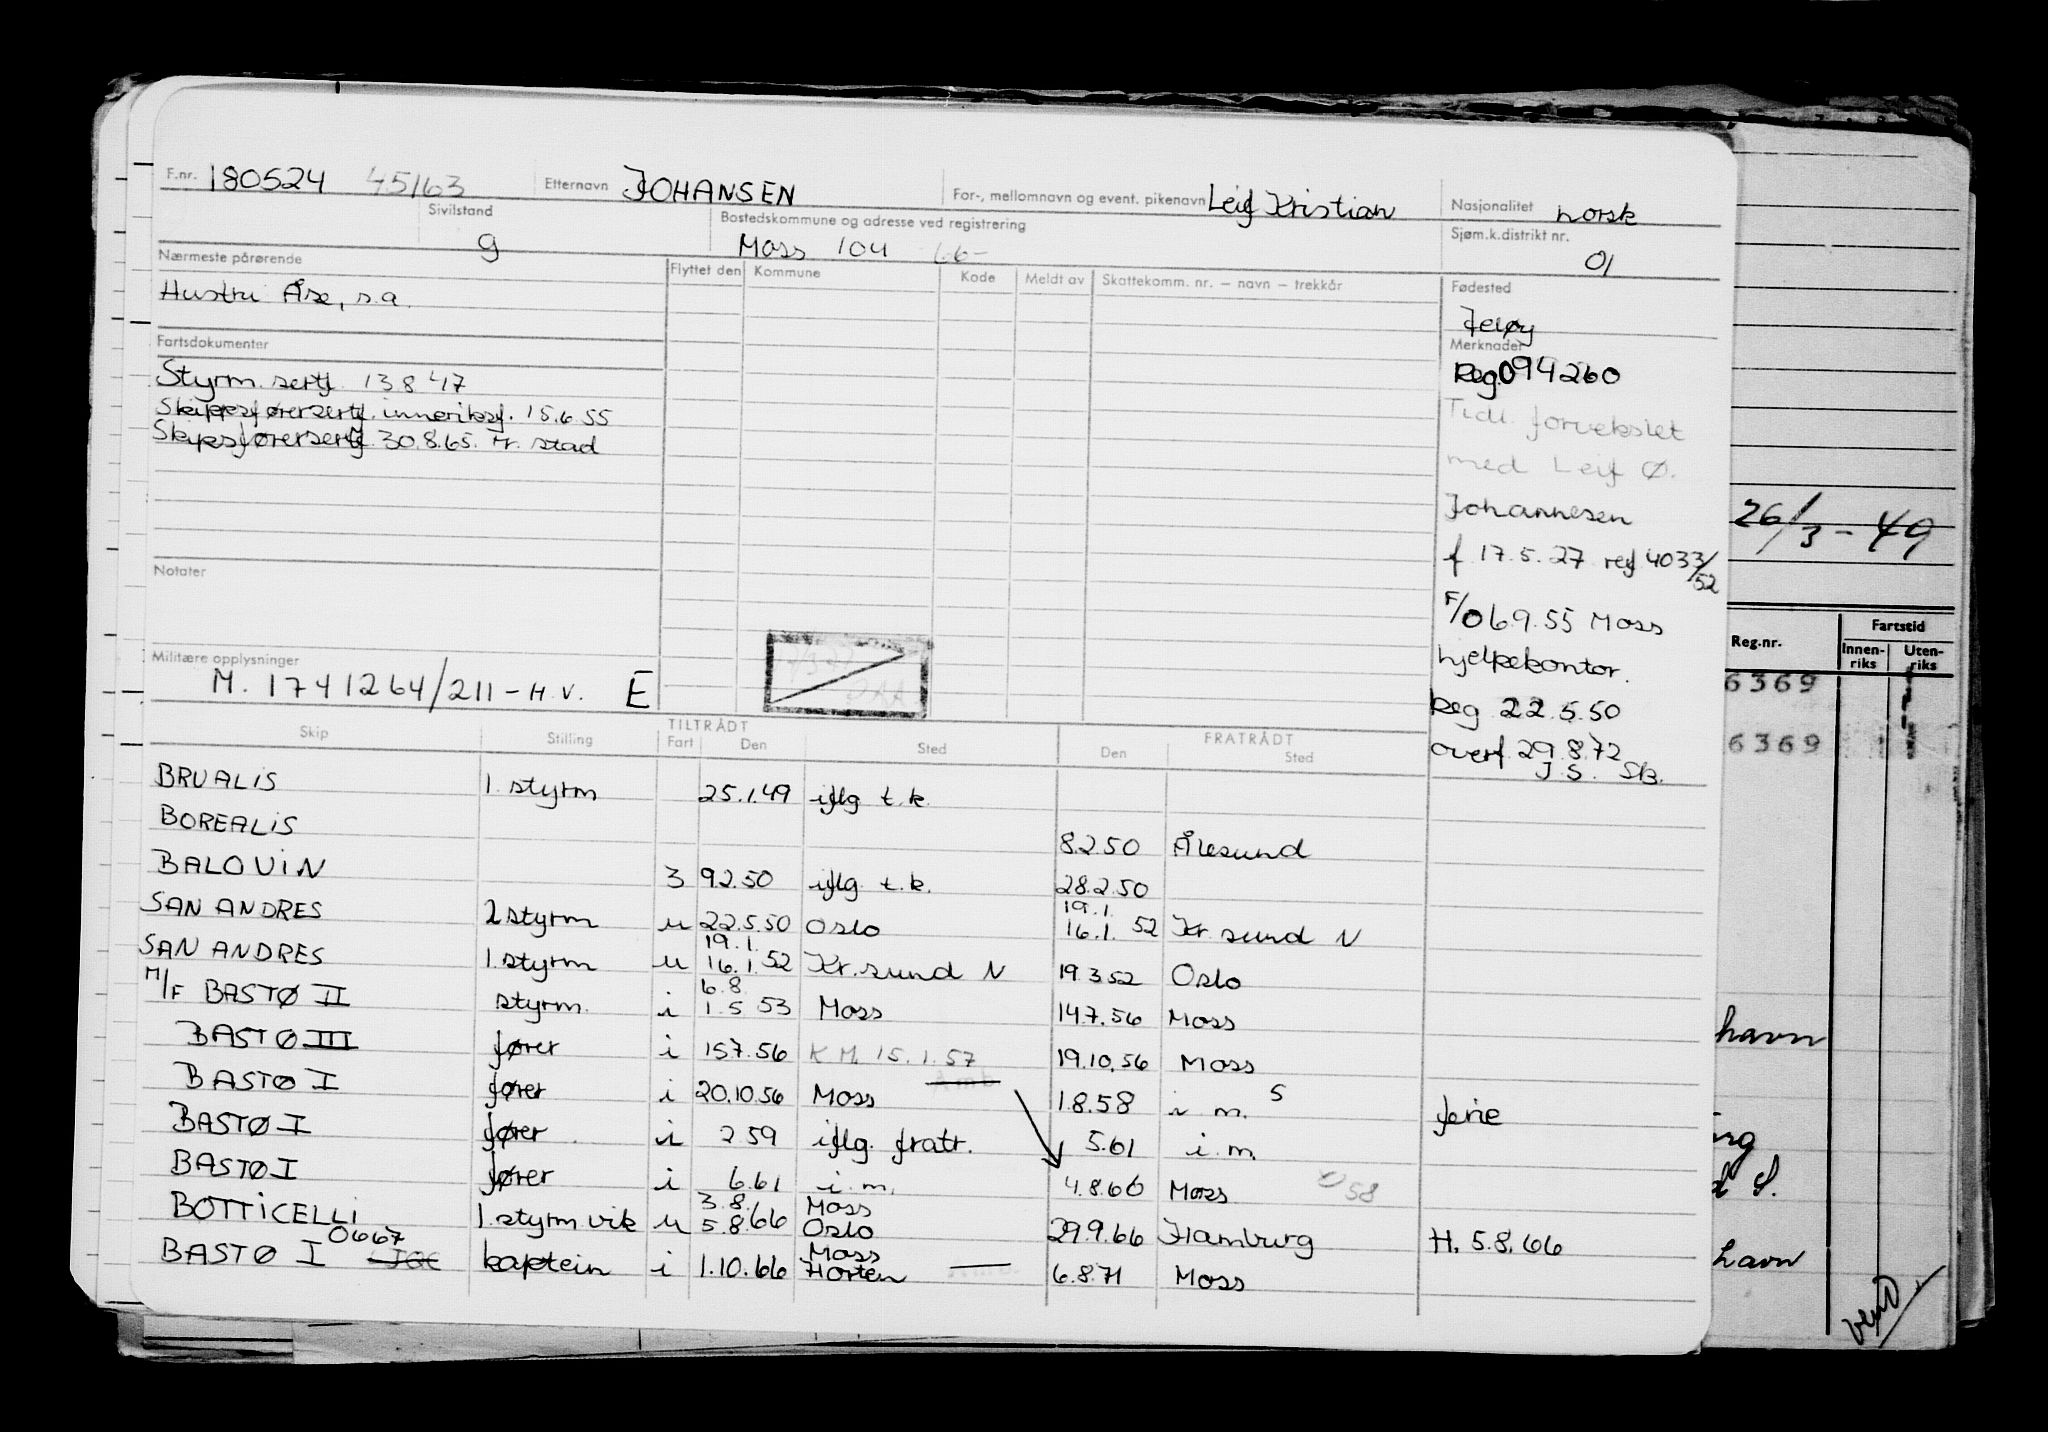 F.nr. 180524 45163 Etternavn JOHANSEN For-, mellomnavn og event. pikenavn Leif Kristian Nasjonalitet norsk
Sivilstand g Bostedskommune og adresse ved registrering Moss 104 66- Sjøm.k.distrikt nr. 01
Nærmeste pårørende Flyttet den Kommune Kode Meldt av Skattekomm. nr. – navn – trekkår Fødested
Hustru Åse, s.a. Jeløy
Fartsdokumenter Merknader
Styrm. sertf. 13.8.47
Skippsførersertf. innenriksf. 15.6.55
Skipsførersertf. 30.8.65. Kr. stad
Reg. 094260
Tidl. forvekslet
med Leif Ø.
Johannesen
f. 17.5.27 ref 4033/52
F/O 6.9.55 Moss
hjelpekontor.
Reg 22.5.50
overf. 29.8.72
J.S. Sk.
Notater
Militære opplysninger
M. 1741264/211-H.V. E
TILTRÅDT FRATRÅDT
Skip Stilling Fart Den Sted Den Sted
BRUALIS 1. styrm 25.1.49 iflg t.k.
BOREALIS 8.2.50 Ålesund
BALOUIN 3 9.2.50 iflg t.k. 28.2.50
SAN ANDRES 2 styrm u 22.5.50 Oslo 19.1. 16.1. 52 Kr.sund N
SAN ANDRES 1. styrm u 19.1. 16.1.52 Kr.sund N 19.3.52 Oslo
M/F BASTØ II styrm. i 6.8. 1.5.53 Moss 14.7.56 Moss
BASTØ III fører i 15.7.56 K M. 15.1.57 19.10.56 Moss
BASTØ I fører i 20.10.56 Moss 1.8.58 i m. S ferie
BASTØ I fører i 2 59 iflg. fratr. 5.61 i.m.
BASTØ I fører i 6.61 i.m. 4.8.66 Moss 58
BOTTICELLI 1. styrm vik u 3.8. 5.8.66 Moss Oslo 29.9.66 Hamburg H. 5.8.66
BASTØ I 0667 kaptein i 1.10.66 Moss Horten 6.8.71 Moss
26/3-49
Reg.nr. Fartstid
Innen-riks Uten-riks
6369
6369
havn
havn
vend